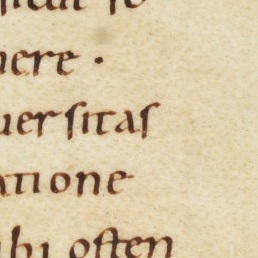 nere ·
uersitas
atione
ibi osten